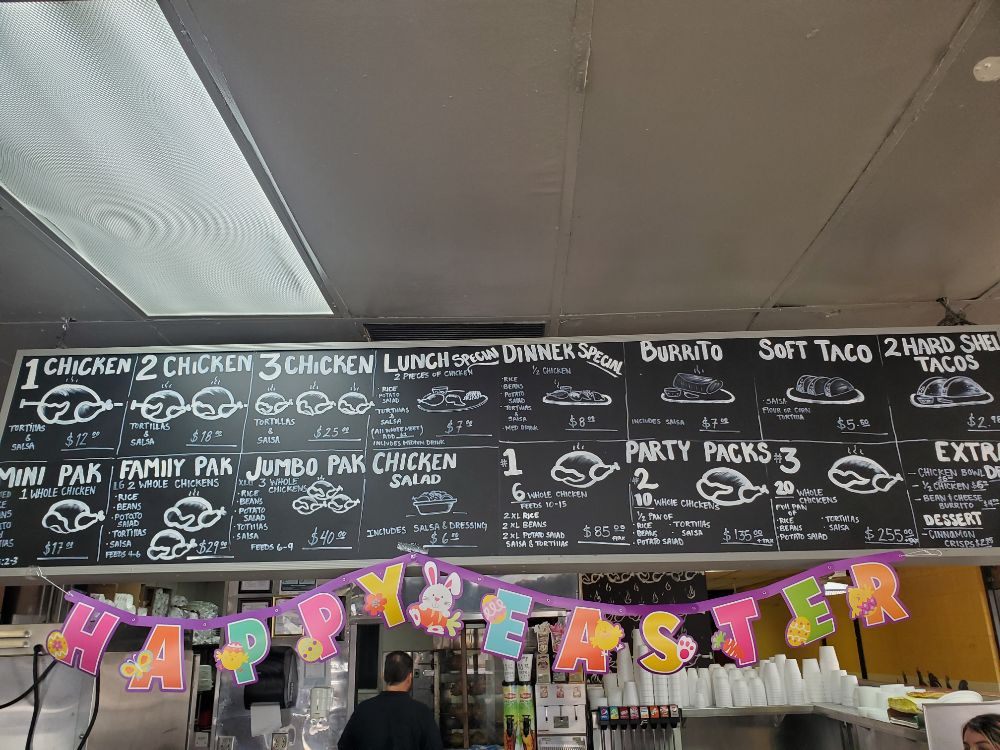 1 CHICKEN
TORTILLAS
&
SALSA
$12.00
2 CHICKEN
TORTILLAS
&
SALSA
$18.00
3 CHICKEN
TORTILLAS
&
SALSA
$25.00
LUNCH SPECIAL
2 PIECES OF CHICKEN
• RICE
BEANS
POTATO
SALAD
TORTILLAS
SALSA
(ALL WHITE MEAT)
ADD
INCLUDES MEDIUM DRINK
$7
DINNER SPECIAL
1/2 CHICKEN
• RICE
BEANS
POTATO
SALAD
• TORTILLAS
&
SALSA
• MED DRINK
$8
BURRITO
INCLUDES SALSA
$7
SOFT TACO
• SALSA
FLOUR OR CORN
TORTILLA
$5.50
2 HARD SHEL
TACOS
$2.
MINI PAK
1 WHOLE CHICKEN
$17.00
FAMILY PAK
2 WHOLE CHICKENS
• RICE
• BEANS
• POTATO
SALAD
• TORTILLAS
• SALSA
FEEDS 4-6
$29.00
JUMBO PAK
3 WHOLE
CHICKENS
• RICE
• BEANS
• POTATO
SALAD
• TORTILLAS
• SALSA
FEEDS 6-9
$40.00
CHICKEN
SALAD
INCLUDES SALSA & DRESSING
$6
PARTY PACKS
#1
6 WHOLE CHICKEN
FEEDS 10-15
2 XL RICE
2 XL BEANS
2 XL POTATO SALAD
SALSA & TORTILLAS
$85.00
+TAX
#2
10 WHOLE CHICKENS
1/2 PAN OF
• RICE
• BEANS
• POTATO SALAD
• TORTILLAS
• SALSA
$135.00
+TAX
#3
20 WHOLE
CHICKENS
FULL PAN
OF
• RICE
• BEANS
• POTATO SALAD
• TORTILLAS
• SALSA
$255.00
+TAX
EXTRA
- CHICKEN BOWL
- 1/2 CHICKEN
- BEAN & CHEESE
BURRITO
DESSERT
- CINNAMON
CRISPS
HAPPY EASTER